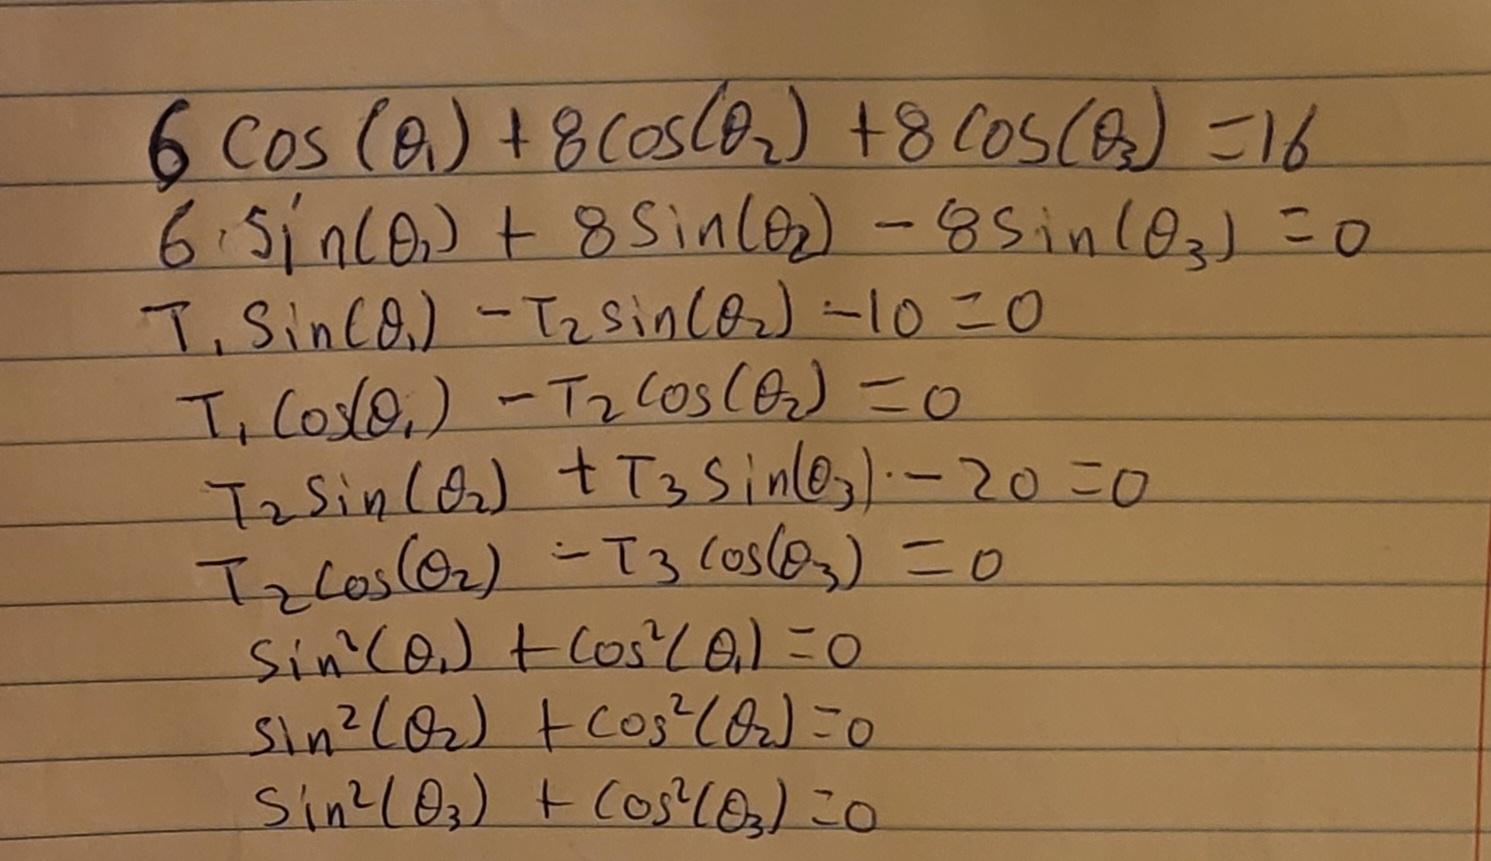 6 cos (θ₁) + 8 cos(θ₂) + 8 cos(θ₃) = 16
6 · sin(θ₁) + 8 sin(θ₂) - 8 sin(θ₃) = 0
T₁ sin(θ₁) - T₂ sin(θ₂) - 10 = 0
T₁ cos(θ₁) - T₂ cos(θ₂) = 0
T₂ sin(θ₂) + T₃ sin(θ₃) - 20 = 0
T₂ cos(θ₂) - T₃ cos(θ₃) = 0
sin²(θ₁) + cos²(θ₁) = 0
sin²(θ₂) + cos²(θ₂) = 0
sin²(θ₃) + cos²(θ₃) = 0